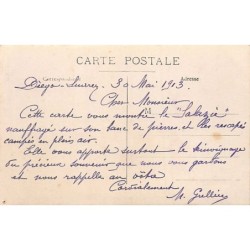 CARTE POSTALE
Correspondance Adresse
Diego-Suarez, 30 Mai 1913
Cher Monsieur
Cette carte vous montre le "Salazie"
naufragé sur son banc de pierres, et les rescapés
campés en plein air.
Elle vous apporte surtout le témoignage
du précieux souvenir que nous vous gardons
et nous rappelle au vôtre
Cordialement